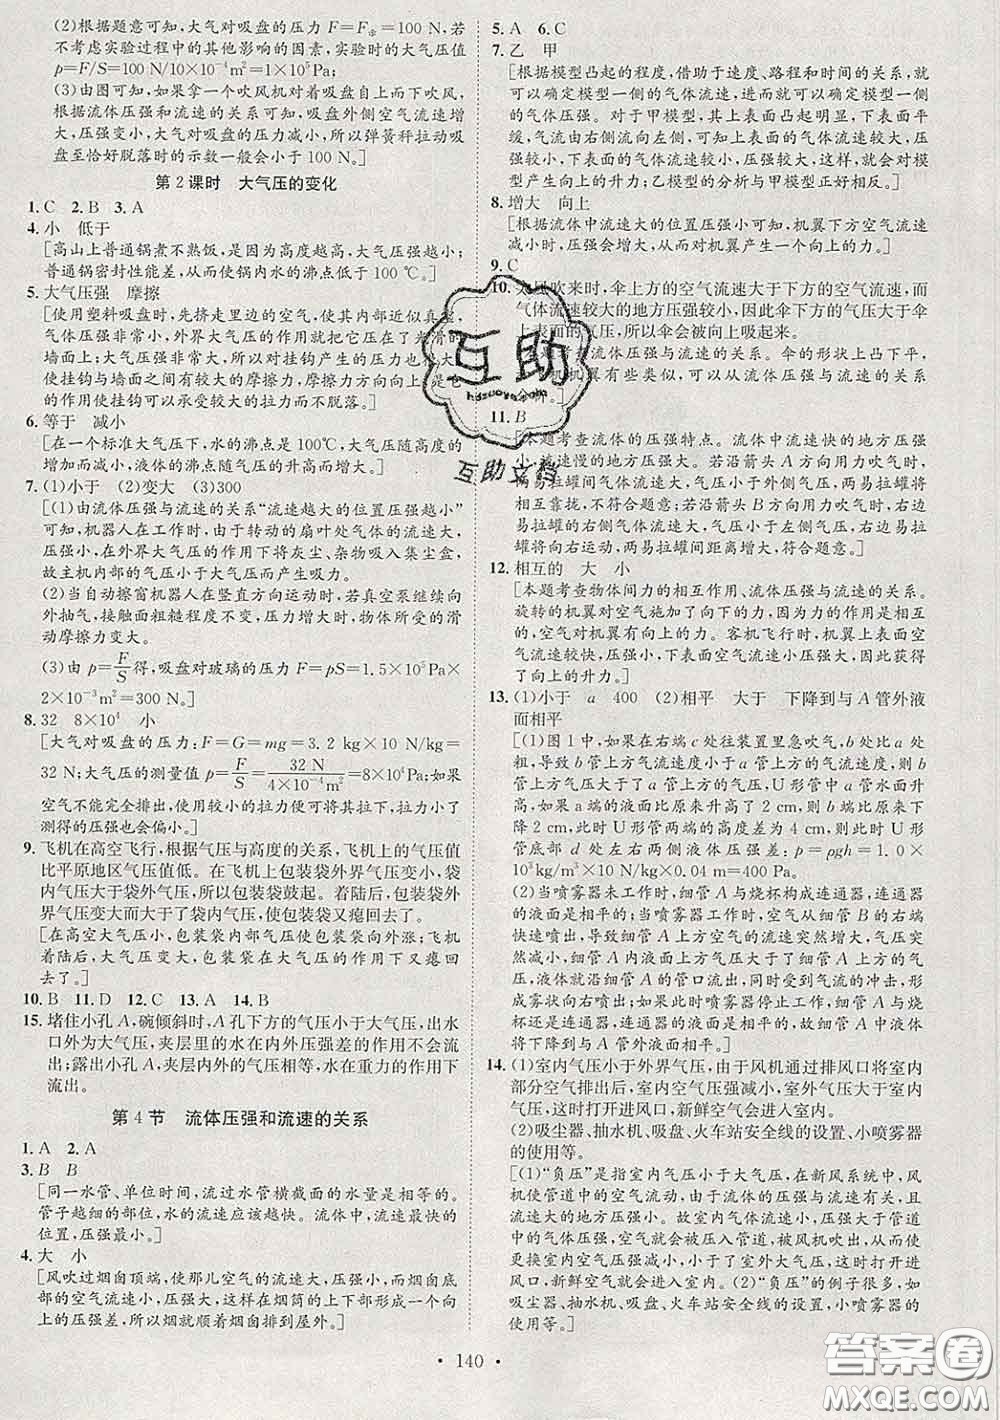 (2)根据题意可知,大气对吸盘的压力 F=F示=100 N,若
不考虑实验过程中的其他影响的因素,实验时的大气压值
p=F/S=100 N/10×10⁻⁴m²=1×10⁵Pa;
(3)由图可知,如果拿一个吹风机对着吸盘自上而下吹风,
根据流体压强和流速的关系可知,吸盘外侧空气流速增
大,压强变小,大气对吸盘的压力减小,所以弹簧秤拉动吸
盘至恰好脱落时的示数一般会小于 100 N。]
第 2 课时 大气压的变化
1. C 2. B 3. A
4. 小 低于
[高山上普通锅煮不熟饭,是因为高度越高,大气压强越小;
普通锅密封性能差,从而使锅内水的沸点低于 100 ℃。]
5. 大气压强 摩擦
[使用塑料吸盘时,先挤走里边的空气,使其内部近似真空,
气体压强非常小,外界大气压的作用就把它压在了光滑的
墙面上;大气压强非常大,所以对挂钩产生的压力也很大,
使挂钩与墙面之间有较大的摩擦力,摩擦力与向下的拉力
的作用使挂钩可以承受较大的拉力而不脱落。]
6. 等于 减小
[在一个标准大气压下,水的沸点是 100℃,大气压随高度的
增大而减小,液体的沸点随气压的升高而增大。]
7. (1)小于 (2)变大 (3)300
[(1)由流体压强与流速的关系“流速越大的位置压强越小”
可知,机器人在工作时,由于转动的扇叶处气体的流速大,
压强小,在外界大气压的作用下将灰尘、杂物吸入集尘盒,
故主机内部的气压小于大气压而产生吸力。
(2)当自动擦窗机器人在竖直方向运动时,若真空泵继续向
外抽气,接触面粗糙程度不变,压力增大时,物体所受的滑
动摩擦力变大。
(3)由 p=F/S得,吸盘对玻璃的压力 F=pS=1.5×10⁵Pa×
2×10⁻³m²=300 N。]
8. 32 8×10⁴ 小
[大气对吸盘的压力:F=G=mg=3.2 kg×10 N/kg=
32 N;大气压的测量值 p=F/S=32 N/4×10⁻⁴m²=8×10⁴Pa;如果
空气不能完全排出,使用较小的拉力便可将其拉开,拉力小了
测得的压强也会偏小。]
9. 飞机在高空飞行,根据气压与高度的关系,飞机上的气压值
比平原地区气压值低。在飞机上包装袋外界气压变小,袋
内气压大于袋外气压,所以包装袋鼓起。着陆后,包装袋外
界气压变大而大于了袋内气压,使包装袋又瘪回去了。
[在高空大气压小,包装袋内部气压使包装袋向外涨;飞机
着陆后,大气压变大,包装袋在大气压的作用下又瘪了
回去。]
10. B 11. D 12. C 13. A 14. B
15. 堵住小孔 A,碗倾斜时,A 孔下方的气压小于大气压,出水
口外为大气压,夹层里的水在内外压强差的作用不会流
出;露出小孔 A,夹层内外的气压相等,水在重力的作用下
流出。
第 4 节 流体压强和流速的关系
1. A 2. A
3. B B
[同一水管、单位时间,流过水管横截面的水量是相等的。
管子越细的部位,水的流速应该越快。流体中,流速最快的
位置,压强最小。]
4. 大 小
[风吹过烟囱顶端,使那儿空气的流速大,压强小,而烟囱底
部的空气流速小,压强大,这样在烟筒的上下部形成一个向
上的压强差,所以烟就顺着烟囱排到屋外。]
5. A 6. C
7. 乙 甲
[根据模型凸起的程度,借助于速度、路程和时间的关系,就
可以确定模型一侧的气体流速,进而就可以确定模型一侧
的气体压强。对于甲模型,其上表面凸起明显,下表面平
缓,气流由右侧流向左侧,可知上表面的气体流速较大,压
强较小,下表面的气体流速较小,压强较大,这样就会对模
型产生向上的升力;乙模型的分析与甲模型正好相反。]
8. 增大 向上
[根据流体中流速大的位置压强小可知,机翼下方空气流速
减小时,压强会增大,从而对机翼产生一个向上的力。]
9. C
10. 大风吹来时,伞上方的空气流速大于下方的空气流速,而
气体流速较大的地方压强较小,因此伞下方的气压大于伞
上表面的气压,所以伞会被向上吸起来。
[本题考查流体压强与流速的关系。伞的形状上凸下平,
和飞机机翼有些类似,可以从流体压强与流速的关系
分析。]
11. B
[本题考查流体的压强特点。流体中流速快的地方压强
小,流速慢的地方压强大。若沿箭头 A 方向用力吹气,
两易拉罐内侧气体流速大,内侧气压小于外侧气压,两易
拉罐将相互靠拢,不符合题意;若沿箭头 B 方向用力吹
气,右易拉罐的右侧气体流速大,气压小于左侧气压,右易
拉罐将向右运动,两易拉罐间距离增大,符合题意。]
12. 相互的 大 小
[本题考查物体间力的相互作用、流体压强与流速的关系。
旋转的机翼对空气施加了向下的力,因为力的作用是相互
的,空气对机翼产生向上的力。客机飞行时,机翼上表面空气
流速较快,压强小,下表面空气流速小压强大,因此客机获
得了向上的升力。]
13. (1)小于 a 400 (2)相平 大于 下降到与 A 管外液
面相平
[(1)图 1 中,如果在右端 c 处往装置里急吹气,b 处比 a 处
粗,导致 b 管上方气流速度小于 a 管上方的气流速度,则 b
管上方气压大于了 a 管上方的气压,U 形管中 a 管水面
升高,b 管水面下降;如果 a 端的液面比原来升高了 2 cm,则 b 端的液面比原来
下降 2 cm,此时 U 形管两端的高度差为 4 cm;所以此时 U 形
管底部 d 处左右两侧液体压强差:p=ρgh=1.0×
10³kg/m³×10 N/kg×0.04 m=400 Pa。
(2)当喷雾器未工作时,细管 A 与烧杯构成连通器,连通器
的液面是相平的;当喷雾器工作时,空气从细管 B 的右端
快速喷出,导致细管 A 上方空气的流速突然增大,压强减
小,细管 A 内液面下方的压强大于细管 A 上方的空气压
强,液体就沿细管 A 的管口流出,同时受到气流的冲击,形
成雾状向右喷出;当喷雾器停止工作后,细管 A 与烧
杯还是构成连通器,连通器的液面是相平的,故细管 A 中液体
将下降到与液面相平。]
14. (1)室内气压小于外界气压,由于风机通过排风口将室内
部分空气排出后,室内空气压强减小,室外气压大于室内气
压,这时打开进风口,新鲜空气会进入室内。
(2)吸尘器、抽水机、吸盘、火车站安全线的设置、小喷雾器
的使用等。
[(1)“负压”是指室内气压小于大气压,在新风系统中,风
机使管道中的空气流动,由于流体的压强与流速有关,且
流速大的地方压强小。故室内气体流速小、压强大于管道
中的气体压强,空气被压入管道,被风机吸出室外,从而使
更换室内空气压强减小,小于了室外大气压。这时打开进
风口,新鲜空气就会进入室内。(2)“负压”的例子很多,如
吸尘器、抽水机、吸盘、火车站安全线的设置、小喷雾器的
使用等。]
• 140 •
互助
互助文档
答案圈
MXQE.COM